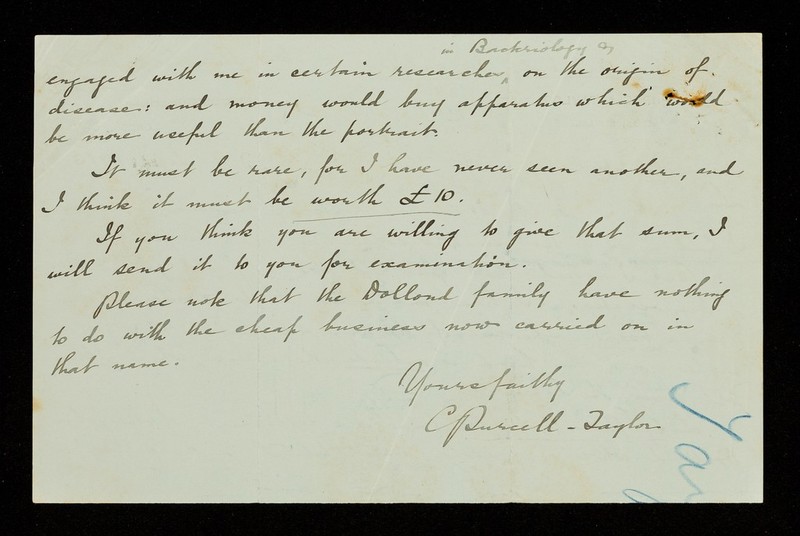 in Backriology &
engaged with me in certain researches, on the origin of
disease: and money would buy apparatus which would
be more useful than the portrait.
It must be rare, for I have never seen another, and
I think it must be worth £10.
If you think you are willing to give that sum, I
will send it to you for examination.
Please note that the Dollond family have nothing
to do with the cheap business now carried on in
that name.
Yours faithy
C Purcell-Taylor